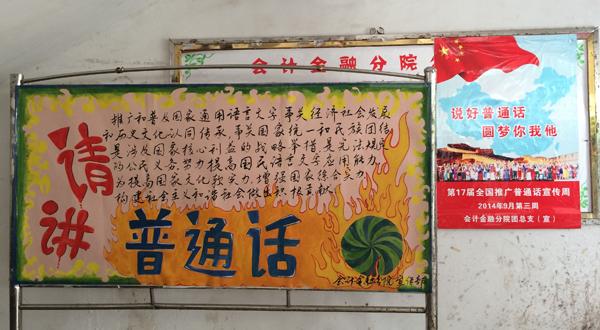 会计金融分院
请讲
推广和普及国家通用语言文字事关经济社会发展
和历史文化认同传承事关国家统一和民族团结
是涉及国家核心利益的战略举措是宪法规定
的公民义务努力提高国民语言文字应用能力
为提高国家文化软实力增强国家综合实力
构建社会主义和谐社会做出积极贡献
普通话
会计金融分院宣传部
说好普通话
圆梦你我他
第17届全国推广普通话宣传周
2014年9月第三周
会计金融分院团总支（宣）